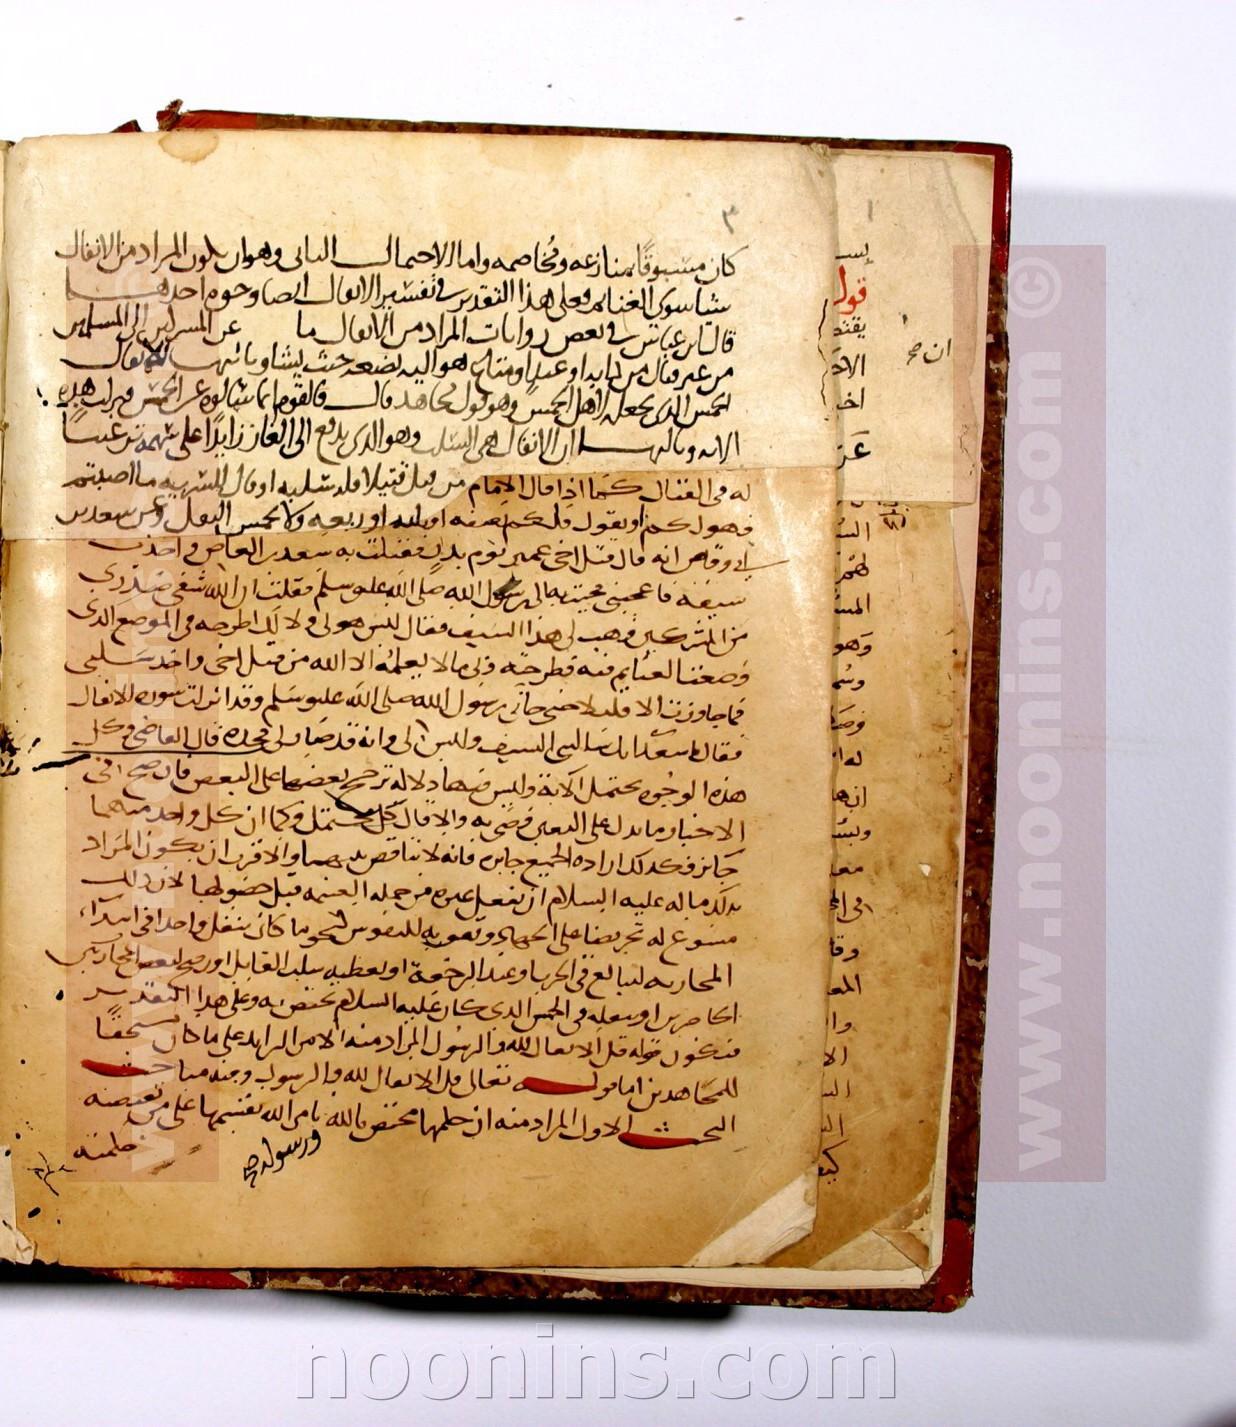 ٣
كان مسبوقا بمنازعه ومخاصمه واما الاحتمال الثاني وهو ان يكون المراد من الانفال
شيا سوى الغنائم فعلى هذا التقدير في تفسير الانفال ايضا وجوه احدها
قال ابن عباس في بعض روايات المراد من الانفال ما عن المسركين الى المسلمين
من غير قتال من دابه او عبد او متاع هو اليه يضعه حيث يشا وثانيها الانفال
الخمس الذي يجعله لاهل الخمس وهو قول مجاهد قال فالقوم انما سالوه عن الخمس فنزلت هذه
الايه وثالثها ان الانفال هي السلب وهو الذي يدفع الى الغازي زايدا على سهمه ترغيبا
له في القتال كما اذا قال الامام من قتل قتيلا فله سلبه او قال لسريه ما اصبتم
فهو لكم او يقول فلكم نصفه او ثلثه او ربعه ولا يخمس النفل وعن سعد بن
ابي وقاص انه قال قتل اخي عمير يوم بدر فقتلت به سعد بن العاص واخذت
سيفه فاعجبني فجئت به الى رسول الله صلى الله عليه وسلم فقلت ان الله شفى صدري
من المشركين فهب لي هذا السيف فقال ليس هو لي ولا لك اطرحه في الموضع الذي
وضعت الغنايم فيه فطرحته وبي ما لا يعلمه الا الله من قتل اخي واخذ سلبي
فما جاوزت الا قليلا حتى جاني رسول الله صلى الله عليه وسلم وقد انزلت سورة الانفال
فقال يا سعد انك سالتني السيف وليس لي وانه قد صار لي فخذه قال القاضي وكل
هذه الوجوه يحتمل الاية وليس فيها دلاله ترجح بعضها على البعض فان صح في
الاخبار ما يدل على التعيين قضي به والا فالكل محتمل وكما ان كل واحد منهما
جايز فكذلك اراده الجميع جايزه فانه لا تناقض بينهما والاقرب ان يكون المراد
بذلك ما له عليه السلام ان ينفل غيره من جمله الغنيمه قبل حصولها لان ذلك
مسوع له تحريضا على الجهاد وتقويه للنفوس لنحو ما كان ينفل واحدا في ابتداء
المحاربه ليبالغ في الحرب او عند الرجعة او يعطيه سلب القاتل او رضخ لبعض المحاربين
الحاضرين او ينفله من الخمس الذي كان عليه السلام يختص به وعلى هذا التقدير
فيكون قوله قل الانفال لله والرسول المراد منه الامر الزايد على ما كان مستحقا
للمجاهدين اما قوله تعالى قل الانفال لله والرسول وفيه مباحث
البحث الاول المراد منه ان حكمها مختص بالله ورسوله صح يامر الله بقسمتها على من تقتضيه
حكمته
ان صح
قول